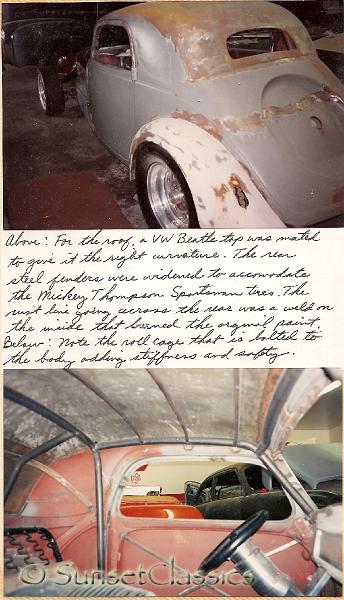 Above: For the roof, a VW Beatle top was mated
to give it the right curvature. The rear
steel fenders were widened to accomodate
the Mickey Thompson Sportsman tires. The
rust line going across the rear was a weld on
the inside that burned the orginal paint.
Below: Note the roll cage that is bolted to
the body adding stiffness and safety.
© SunsetClassics